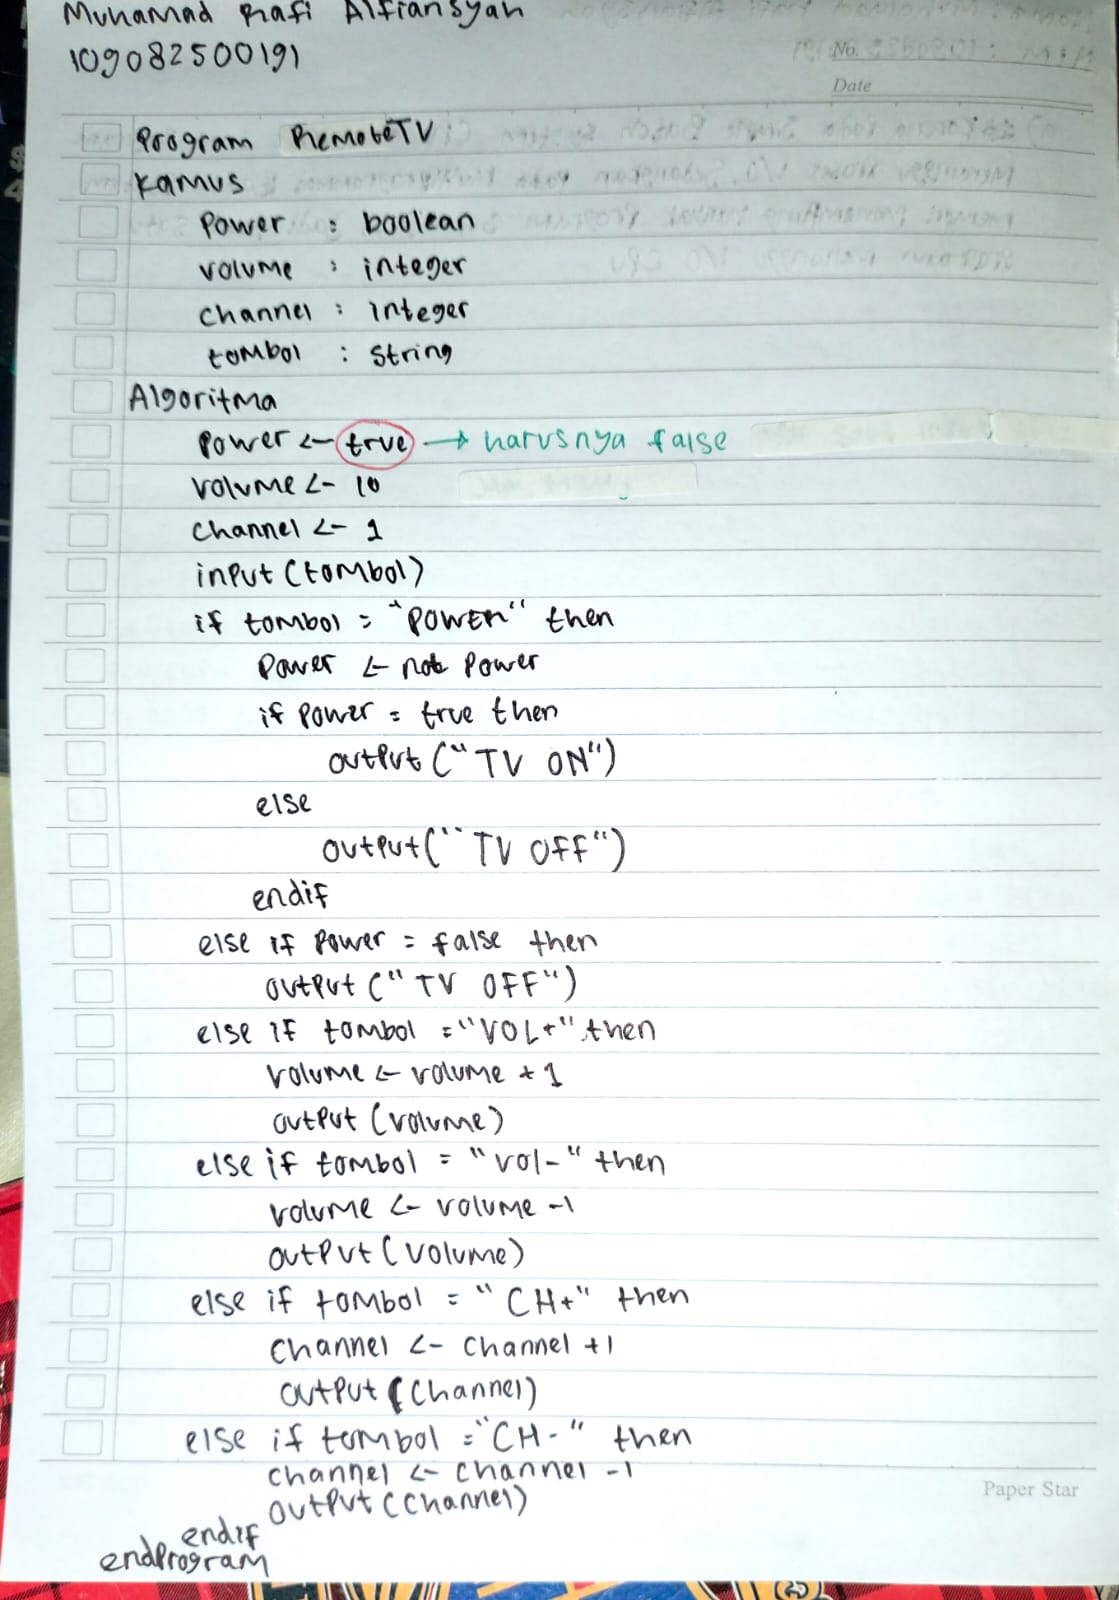 Muhamad Rafi Alfiansyah
109082500191
No.
Date
Program RemoteTV
Kamus
Power : boolean
volume : integer
channel : integer
tombol : string
Algoritma
Power <- true → harusnya false
volume <- 10
channel <- 1
input (tombol)
if tombol = "POWER" then
Power <- not Power
if Power = true then
output ("TV ON")
else
output ("TV OFF")
endif
else if Power = false then
output ("TV OFF")
else if tombol = "VOL+" then
volume <- volume + 1
output (volume)
else if tombol = "vol-" then
volume <- volume -1
output (volume)
else if tombol = "CH+" then
channel <- channel +1
output (channel)
else if tombol = "CH-" then
channel <- channel -1
output (channel)
endif
endprogram
Paper Star